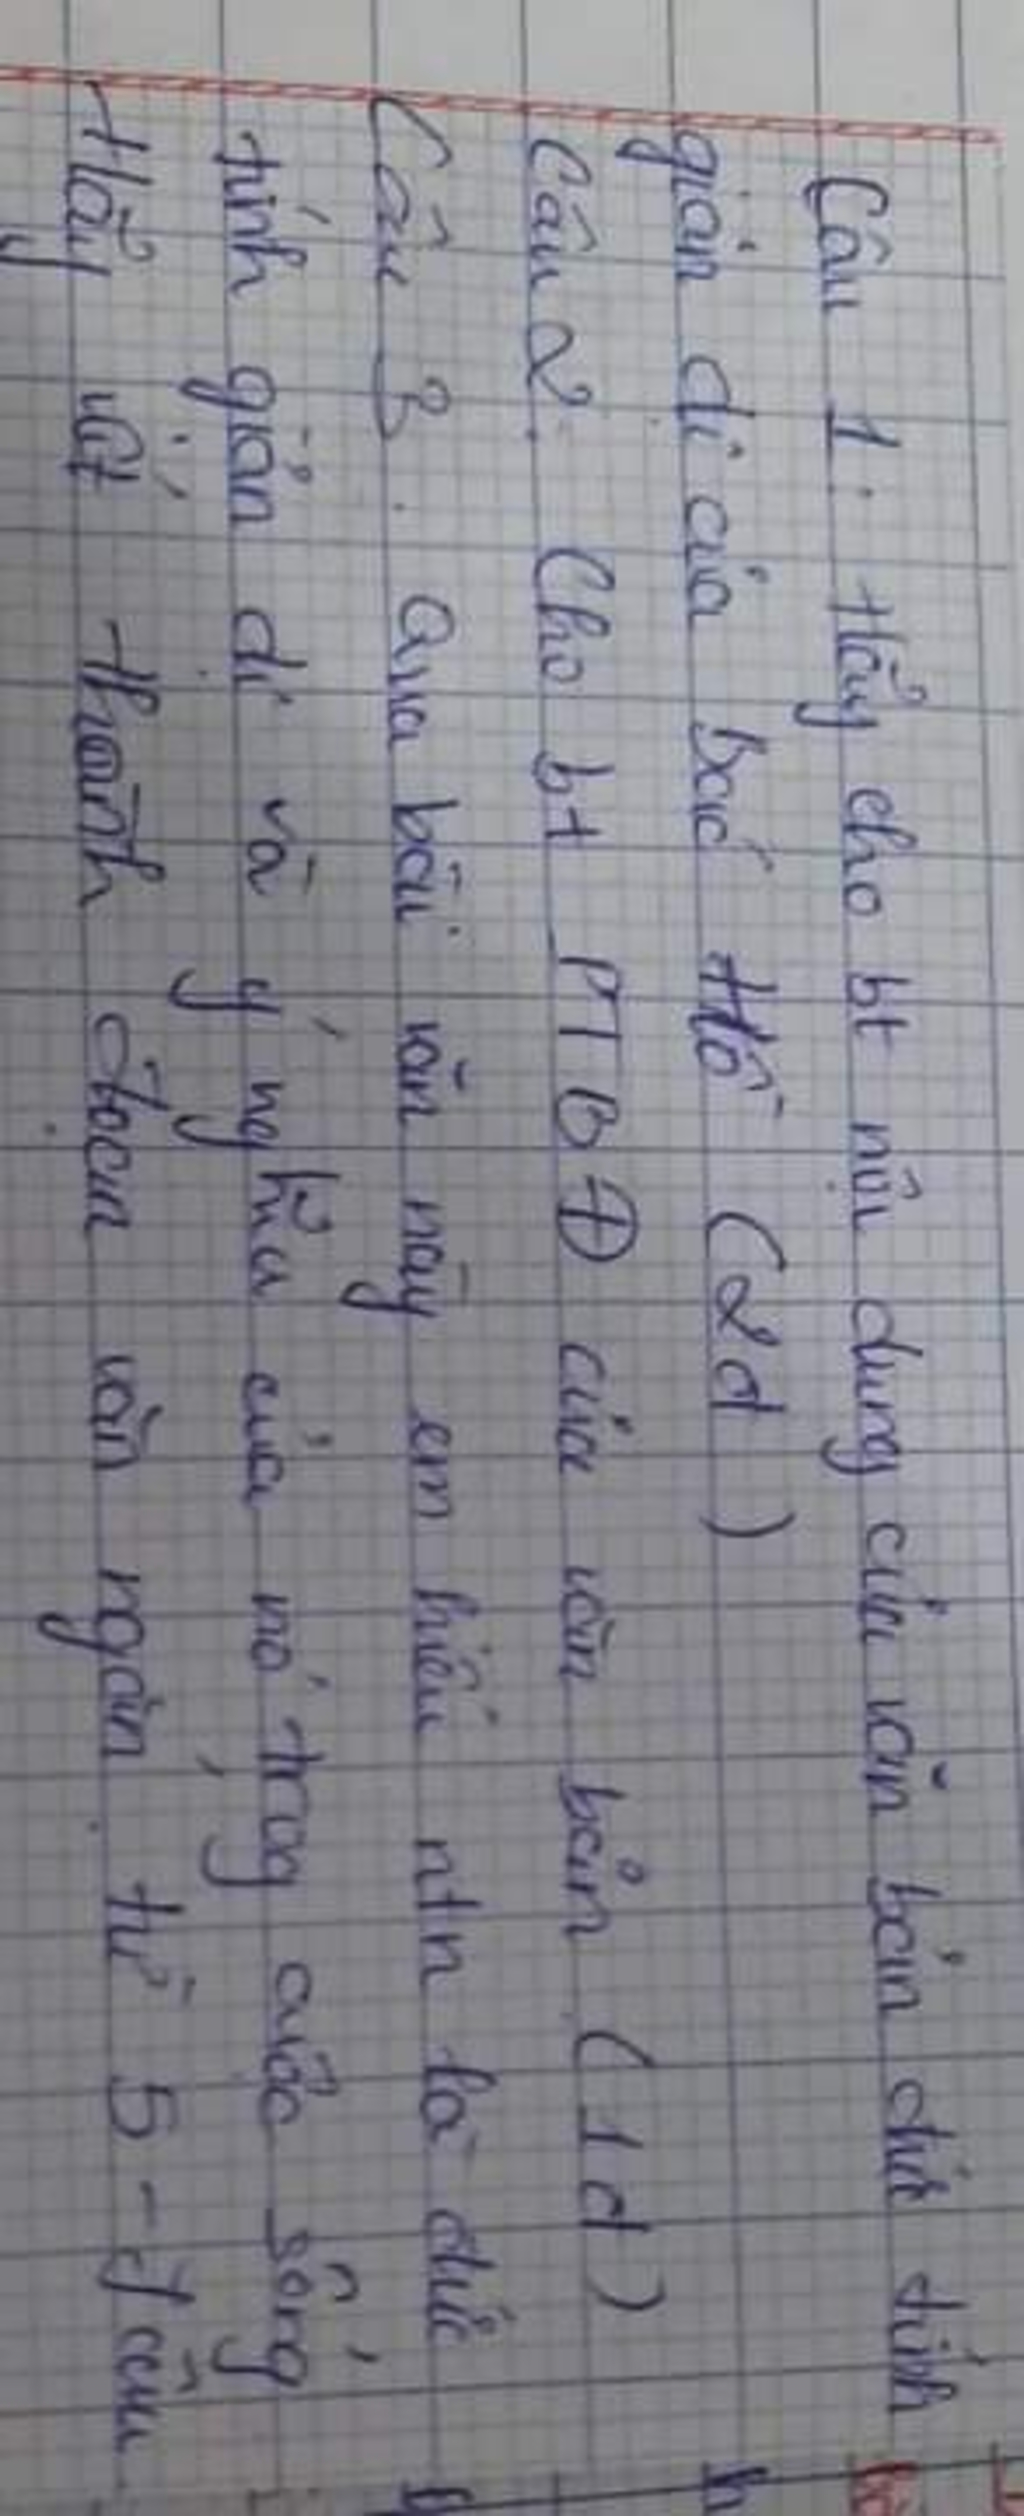 Câu 1: Hãy cho bt nội dung của văn bản đức tính
giản dị của bác Hồ (2đ)
Câu 2: Cho bt PTBĐ của văn bản (1đ)
Câu 3. Qua bài văn này em hiểu ntn là đức
tính giản dị và ý nghĩa của nó trog cuộc sống
Hãy viết thành đoạn văn ngắn từ 5-7 câu